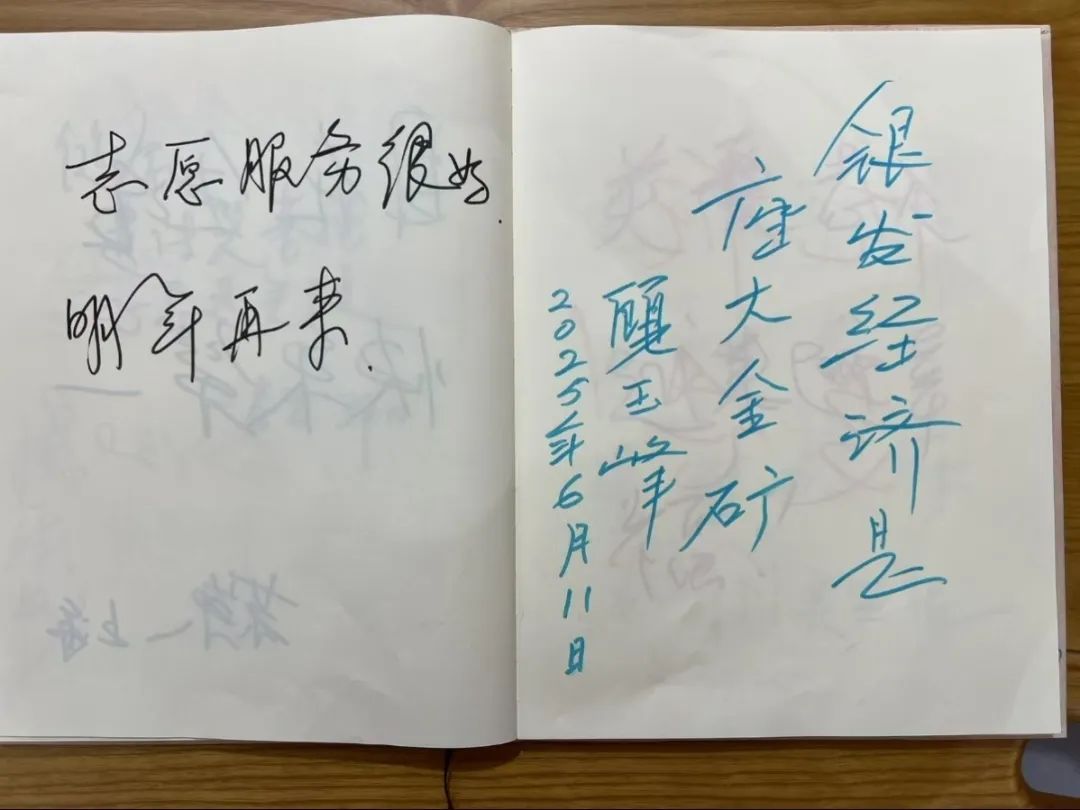 志愿服务很好.
明年再来.
银发经济是
座大金矿
玉峰
2025年6月11日